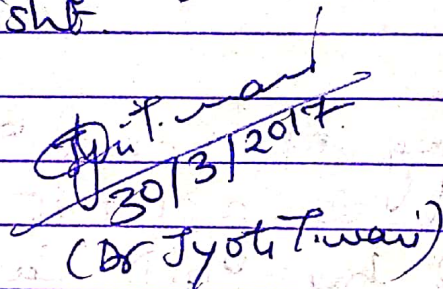 sht
Jyoti Tiwari
30/3/2017
(Dr Jyoti Tiwari)